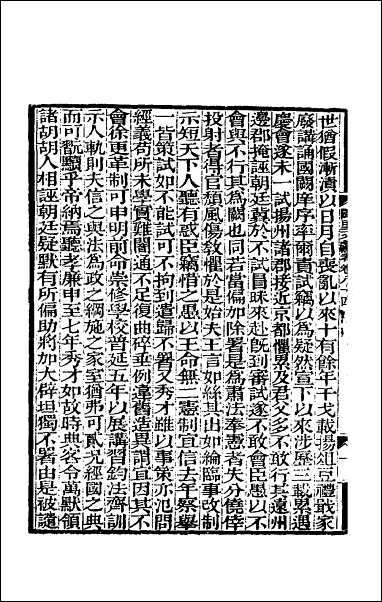 世猶假漸漬以日月自喪亂以來十有餘年干戈載揚俎豆禮戢家
廢講誦國闕庠序率爾責試竊以為疑然宣下以來涉歷三載累遇
慶會遂未一試揚州諸郡接近京都懼累及君父多不敢行其遠州
邊郡掩誣朝廷冀於不試冒昧來赴旣到審試遂不敢會臣愚以不
會與不行其為闕也同若當偏加除署是為肅法奉憲者失分僥倖
投射者得官頹風傷敎懼於是始夫王言如絲其出如綸臨事改制
示短天下人聽有惑臣竊惜之愚以王命無二憲制宜信去年察舉
一首策試如不能試可不拘到遣歸不署又秀才雖以事策亦氾問
經義苟所未學實難闇通不足復曲碎垂例違舊造異謂宜因其不
會徐更革制可申明前命崇修學校普延五年以展講習鈞法齊訓
示人軌則夫信之與法為政之綱施之家室猶弗可貳況經國之典
而可翫黷乎帝納焉聽孝廉申至七年秀才如故時典客令萬默領
諸胡胡人相誣朝廷疑默有所偏助將加大辟坦獨不署由是被譴